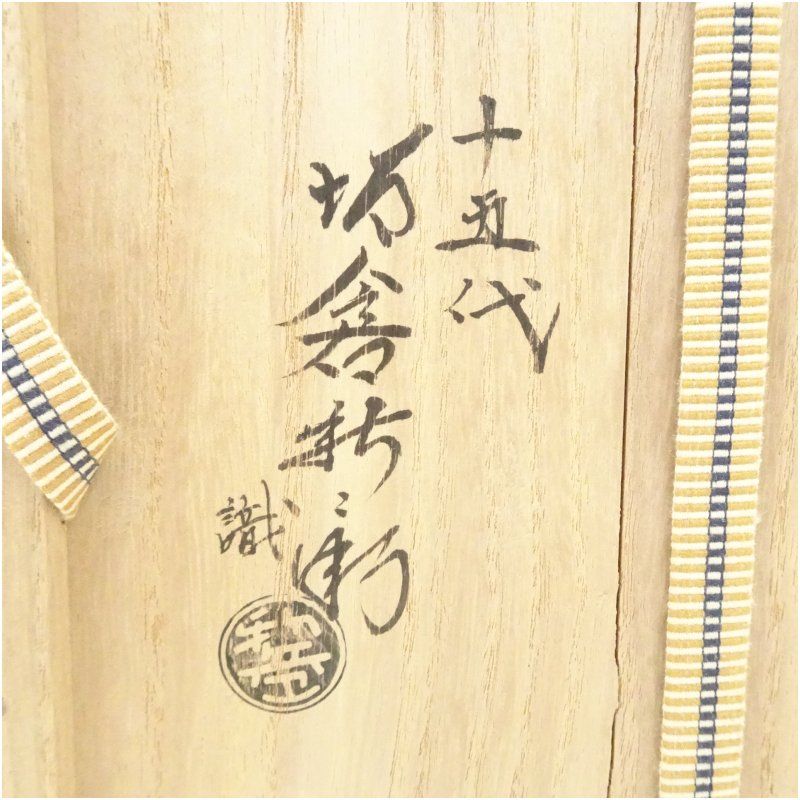 十五代
坂倉新兵衛
識